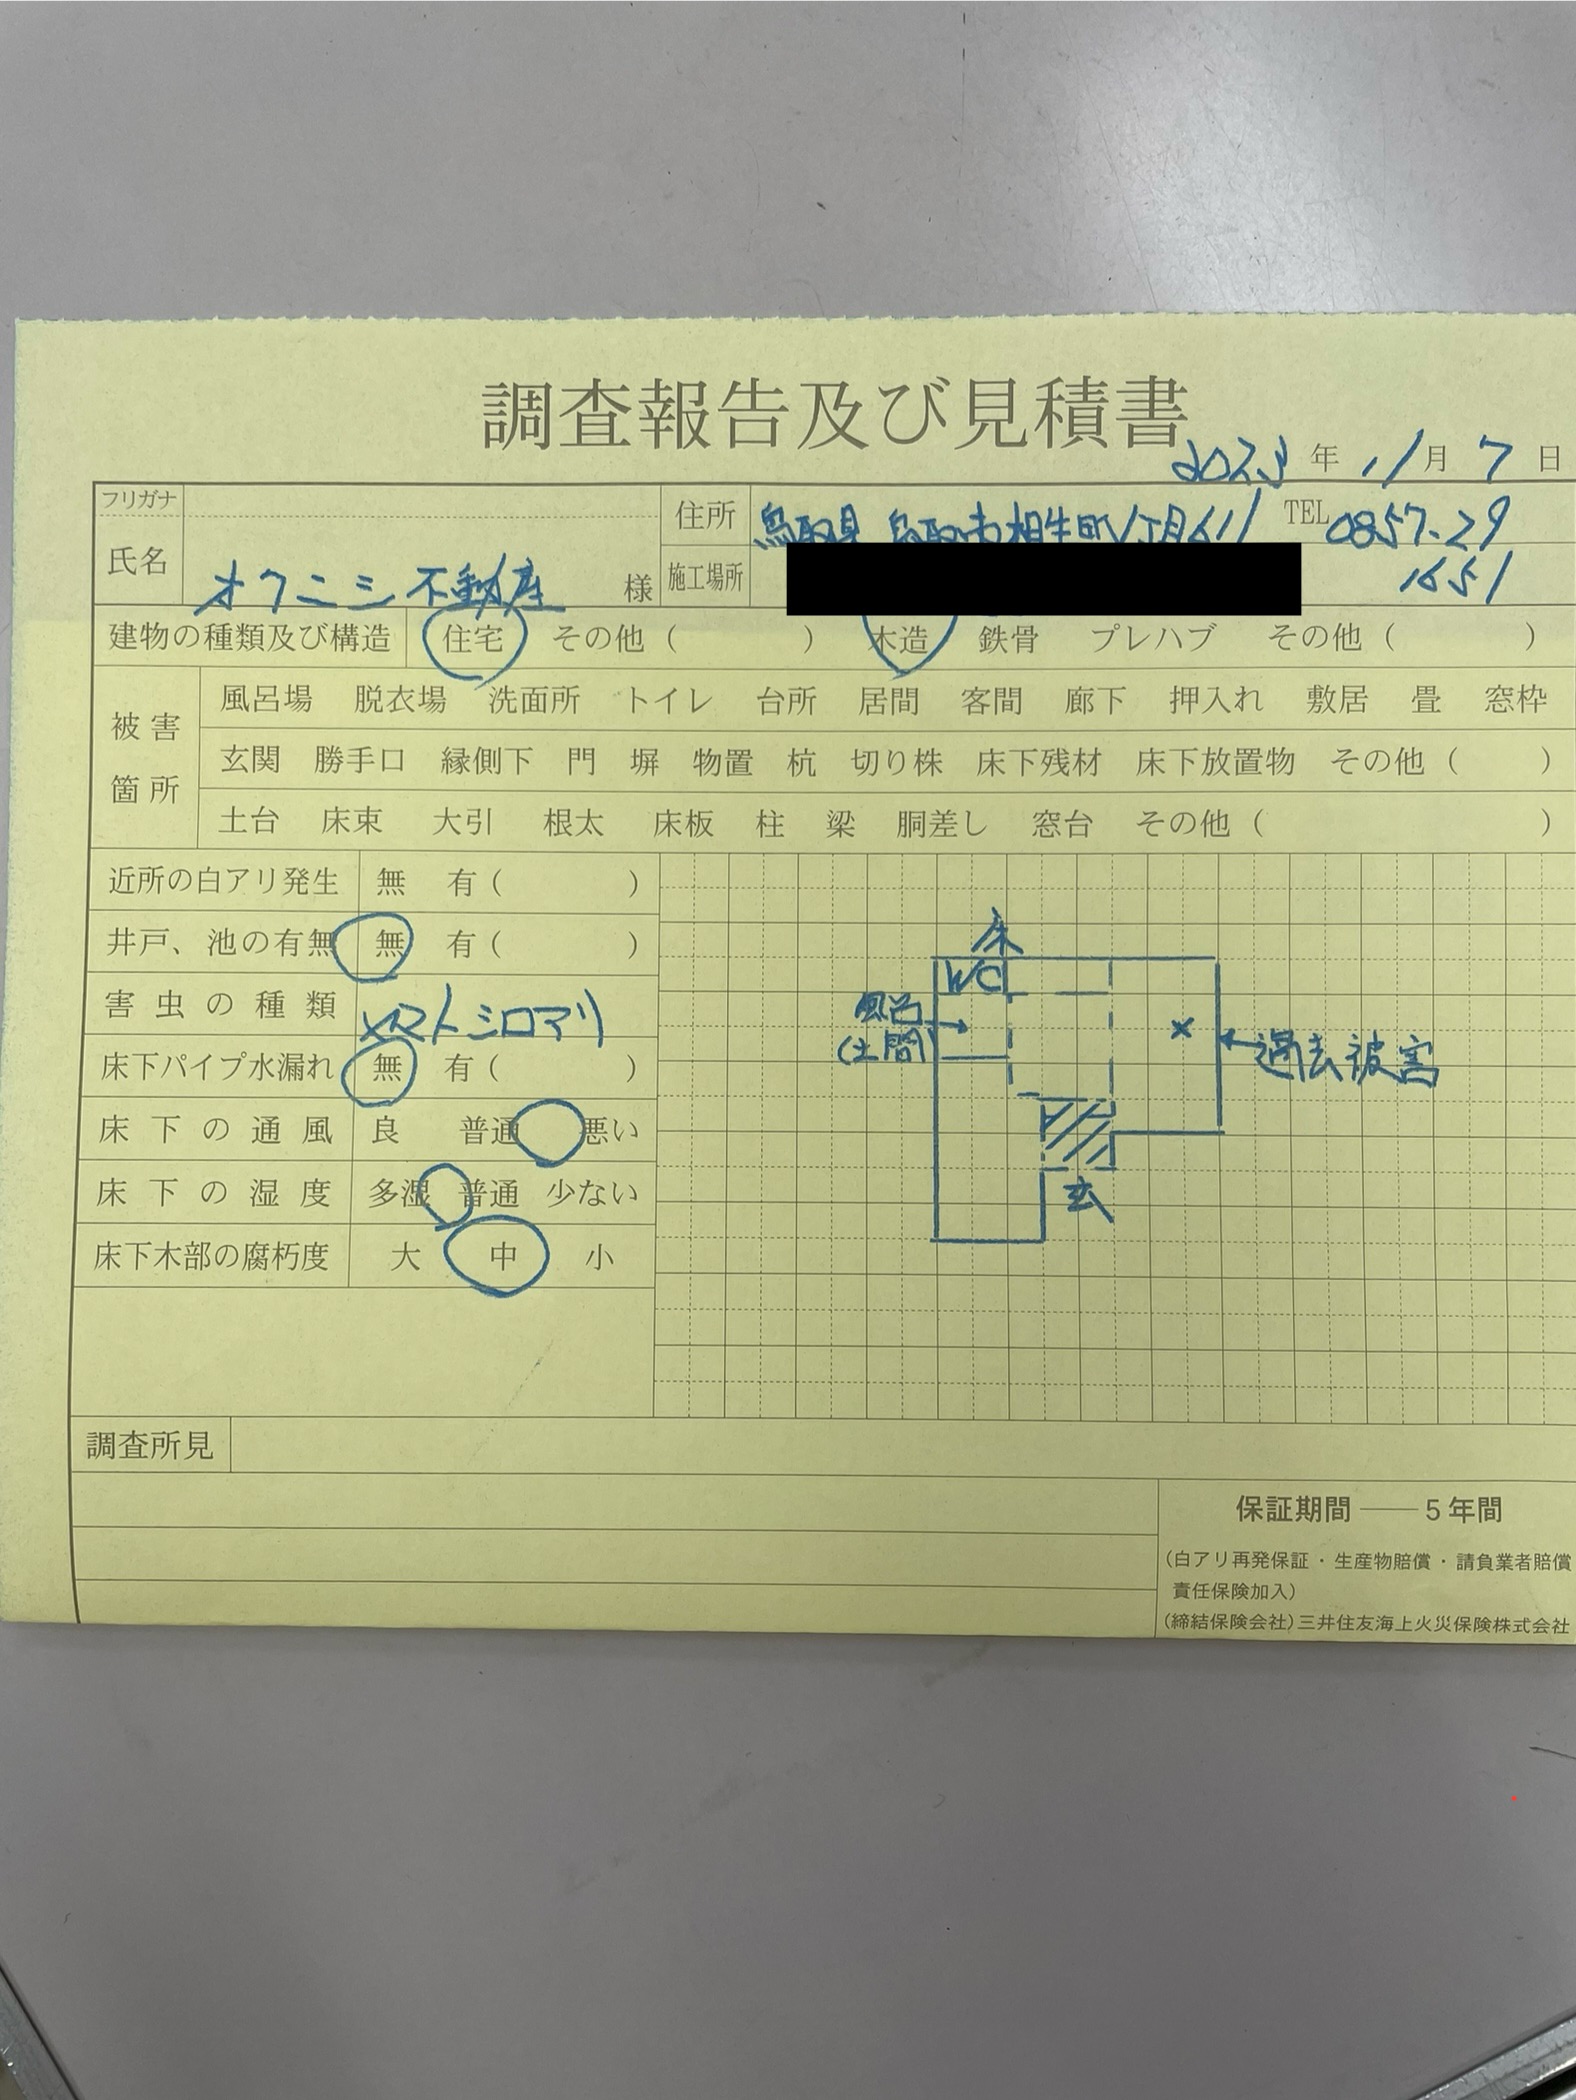 調査報告及び見積書
2023年 11月 7日
フリガナ
氏名 オクニシ不動産 様
住所 鳥取県鳥取市相生町1丁目611 TEL 0857-29
1651
施工場所
建物の種類及び構造 住宅 その他( ) 木造 鉄骨 プレハブ その他( )
被害箇所
風呂場 脱衣場 洗面所 トイレ 台所 居間 客間 廊下 押入れ 敷居 畳 窓枠
玄関 勝手口 縁側下 門 塀 物置 杭 切り株 床下残材 床下放置物 その他( )
土台 床束 大引 根太 床板 柱 梁 胴差し 窓台 その他( )
近所の白アリ発生 無 有( )
井戸、池の有無 無 有( )
害虫の種類 ヤマトシロアリ
床下パイプ水漏れ 無 有( )
床下の通風 良 普通 悪い
床下の湿度 多湿 普通 少ない
床下木部の腐朽度 大 中 小
WC
風呂
(土間)
×
過去被害
玄
調査所見
保証期間――5年間
(白アリ再発保証・生産物賠償・請負業者賠償
責任保険加入)
(締結保険会社)三井住友海上火災保険株式会社